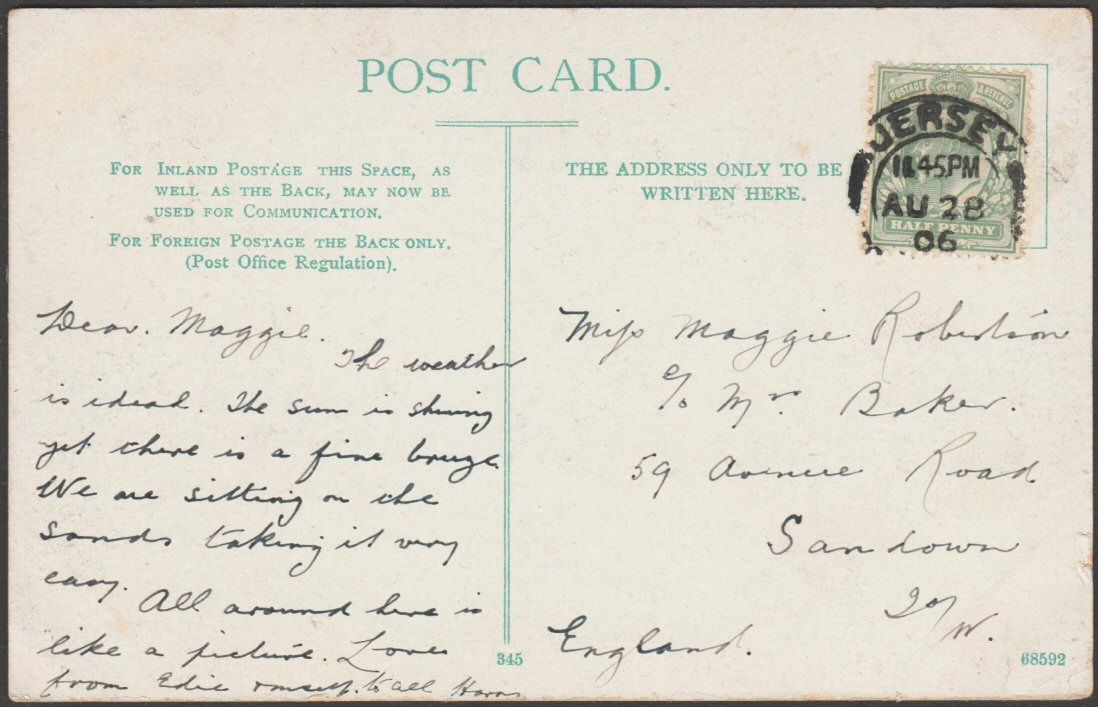 POST CARD.
FOR INLAND POSTAGE THIS SPACE, AS
WELL AS THE BACK, MAY NOW BE
USED FOR COMMUNICATION.
FOR FOREIGN POSTAGE THE BACK ONLY.
(Post Office Regulation).
THE ADDRESS ONLY TO BE
WRITTEN HERE.
POSTAGE & REVENUE
HALF PENNY
JERSEY
11.45PM
AU 28
06
Dear. Maggie.
The weather
is ideal. The sun is shining
yet there is a fine breeze.
We are sitting on the
sands taking it very
easy.
All around here is
like a picture. Love
from Edie to all
Miss Maggie Robertson
c/o Mrs. Baker.
59 Avenue Road
Sandown
I of W.
England.
345
68592